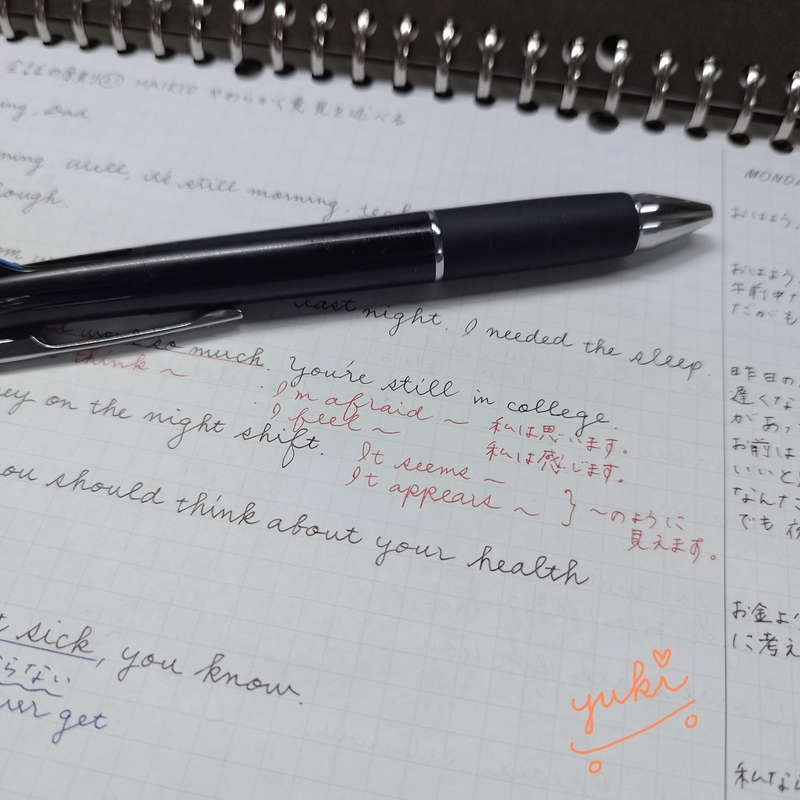 やわらかく意見を述べる
ning, Dad.
ning. Well, it's still morning,
ough.
last night. I needed the sleep.
so much. You're still in college.
think ~
I'm afraid ~ 私は思います。
I feel ~ 私は感じます。
ey on the night shift.
It seems ~
It appears ~ } ~のように
見えます。
ou should think about your health
t sick, you know.
らない
ver get
yuki
MONDA
おはよう、
おはよう、
午前中だ
だがも
昨日の
遅くな
があっ
お前は
いいと
なんだ
でも 夜
お金よ
に考え
私なら